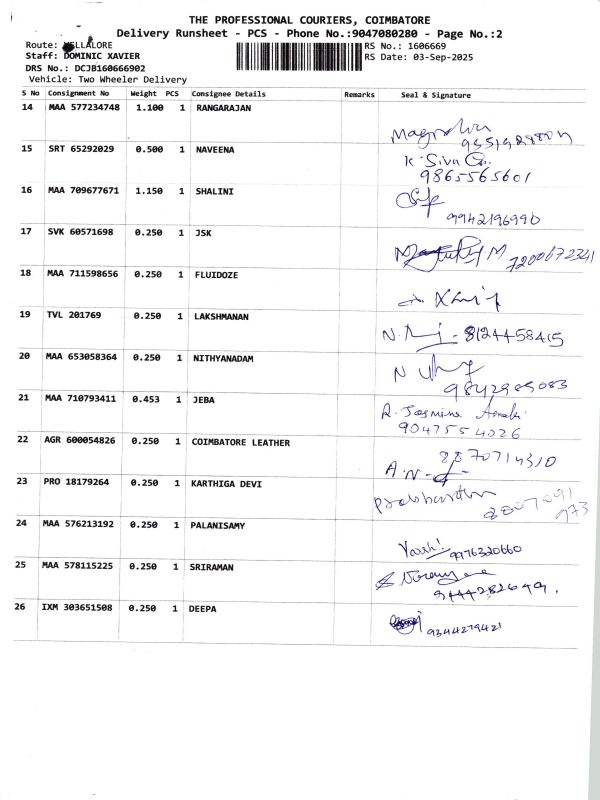 THE PROFESSIONAL COURIERS, COIMBATORE
Delivery Runsheet - PCS - Phone No.:9047080280 - Page No.:2
Route: VELLALORE
RS No.: 1606669
Staff: DOMINIC XAVIER
RS Date: 03-Sep-2025
DRS No.: DCJB160666902
Vehicle: Two Wheeler Delivery
S No Consignment No Weight PCS Consignee Details Remarks Seal & Signature
14 MAA 577234748 1.100 1 RANGARAJAN
15 SRT 65292029 0.500 1 NAVEENA
K. Siva
9865565601
16 MAA 709677671 1.150 1 SHALINI
9942196990
17 SVK 60571698 0.250 1 JSK
M 7200672341
18 MAA 711598656 0.250 1 FLUIDOZE
19 TVL 201769 0.250 1 LAKSHMANAN
8124458415
20 MAA 653058364 0.250 1 NITHYANADAM
9842989083
21 MAA 710793411 0.453 1 JEBA
R. Jasmine
9047554026
22 AGR 600054826 0.250 1 COIMBATORE LEATHER
8870714310
A.N.
23 PRO 18179264 0.250 1 KARTHIGA DEVI
24 MAA 576213192 0.250 1 PALANISAMY
9976320660
25 MAA 578115225 0.250 1 SRIRAMAN
9444282649.
26 IXM 303651508 0.250 1 DEEPA
9344279421